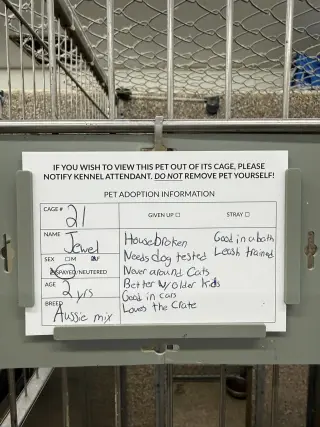 IF YOU WISH TO VIEW THIS PET OUT OF ITS CAGE, PLEASE
NOTIFY KENNEL ATTENDANT. DO NOT REMOVE PET YOURSELF!
PET ADOPTION INFORMATION
CAGE # 21
GIVEN UP ☐ STRAY ☐
NAME Jewel
SEX ☐M ☑F
SPAYED/NEUTERED
AGE 2 yrs
BREED Aussie mix
Housebroken
Needs dog tested
Never around Cats
Better w/older kids
Good in cars
Loves the Crate
Good in a bath
Leash trained